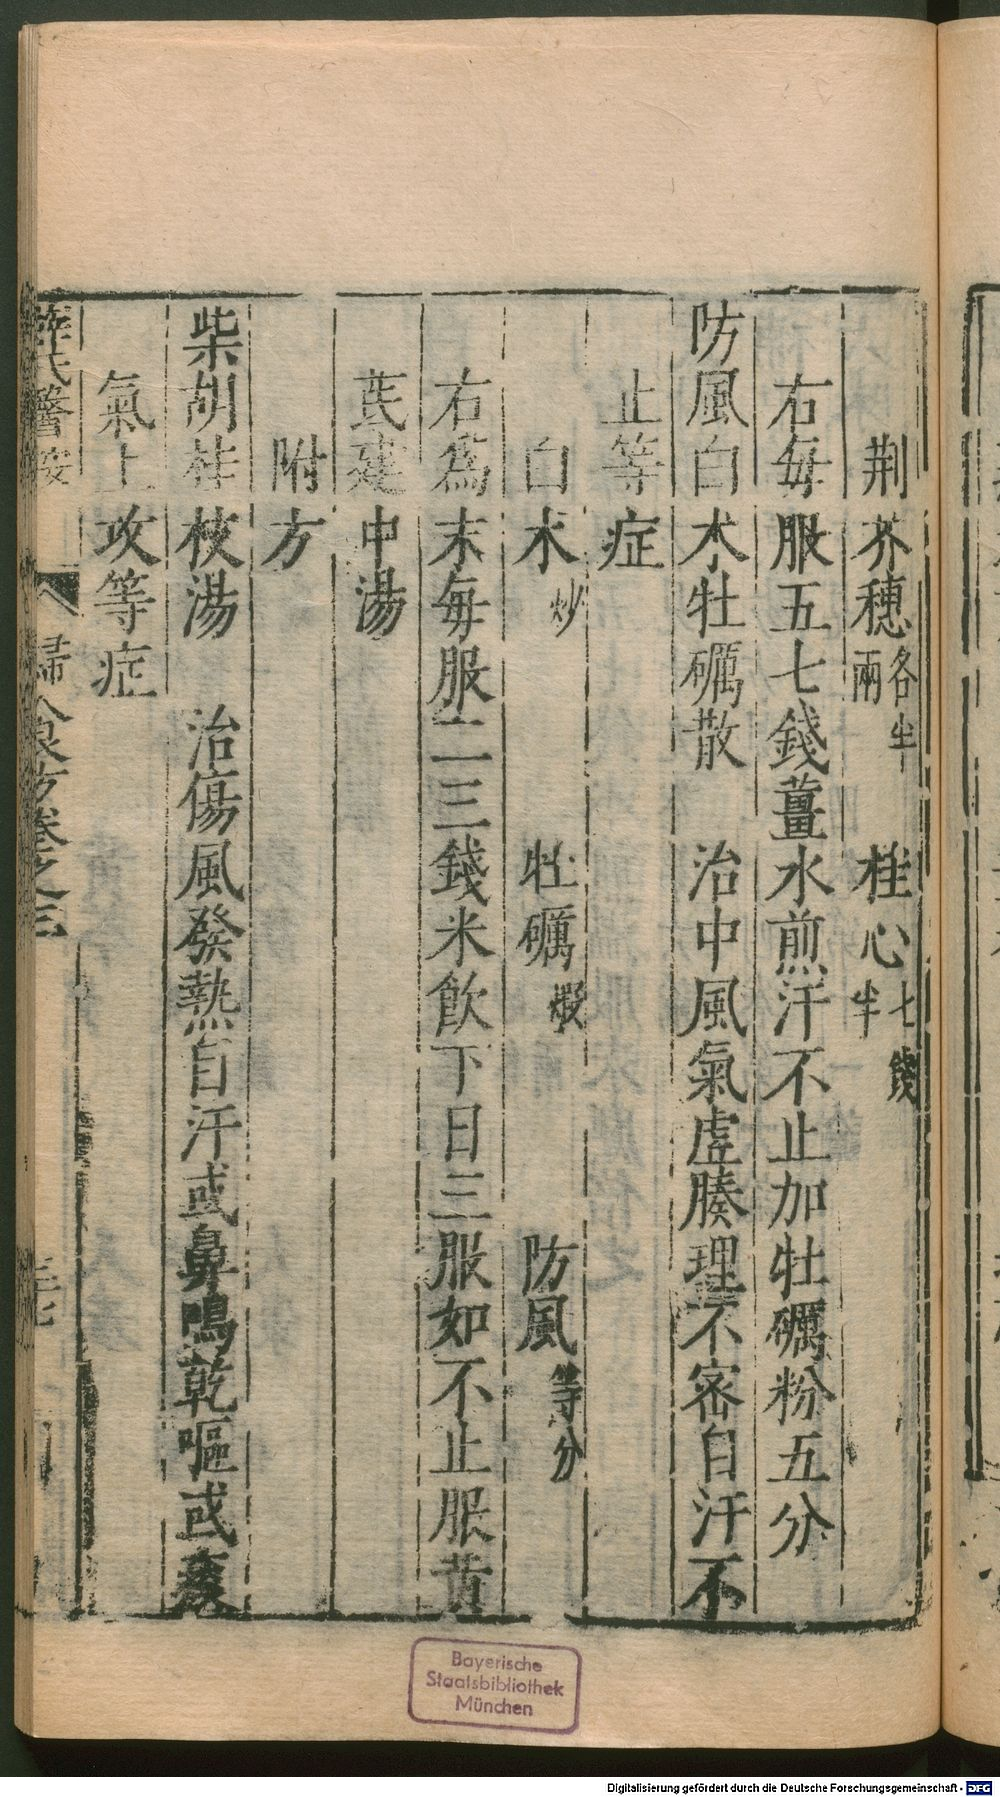 荆芥穗各半兩　桂心七錢半
右每服五七錢薑水煎汗不止加牡礪粉五分
防風白朮牡礪散　治中風氣虛腠理不密自汗不
止等症
白朮炒　牡礪煅　防風等分
右爲末每服二三錢米飲下日三服如不止服黄
茋建中湯
附方
柴胡桂枝湯　治傷風發熱自汗或鼻鳴乾嘔或痰
氣上攻等症
薛氏醫按　婦人良方卷之三
Bayerische
Staatsbibliothek
München
Digitalisierung gefördert durch die Deutsche Forschungsgemeinschaft - DFG